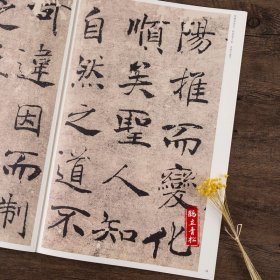 陽推而變化
順矣聖人知
自然之道不
可違因而制
立青松